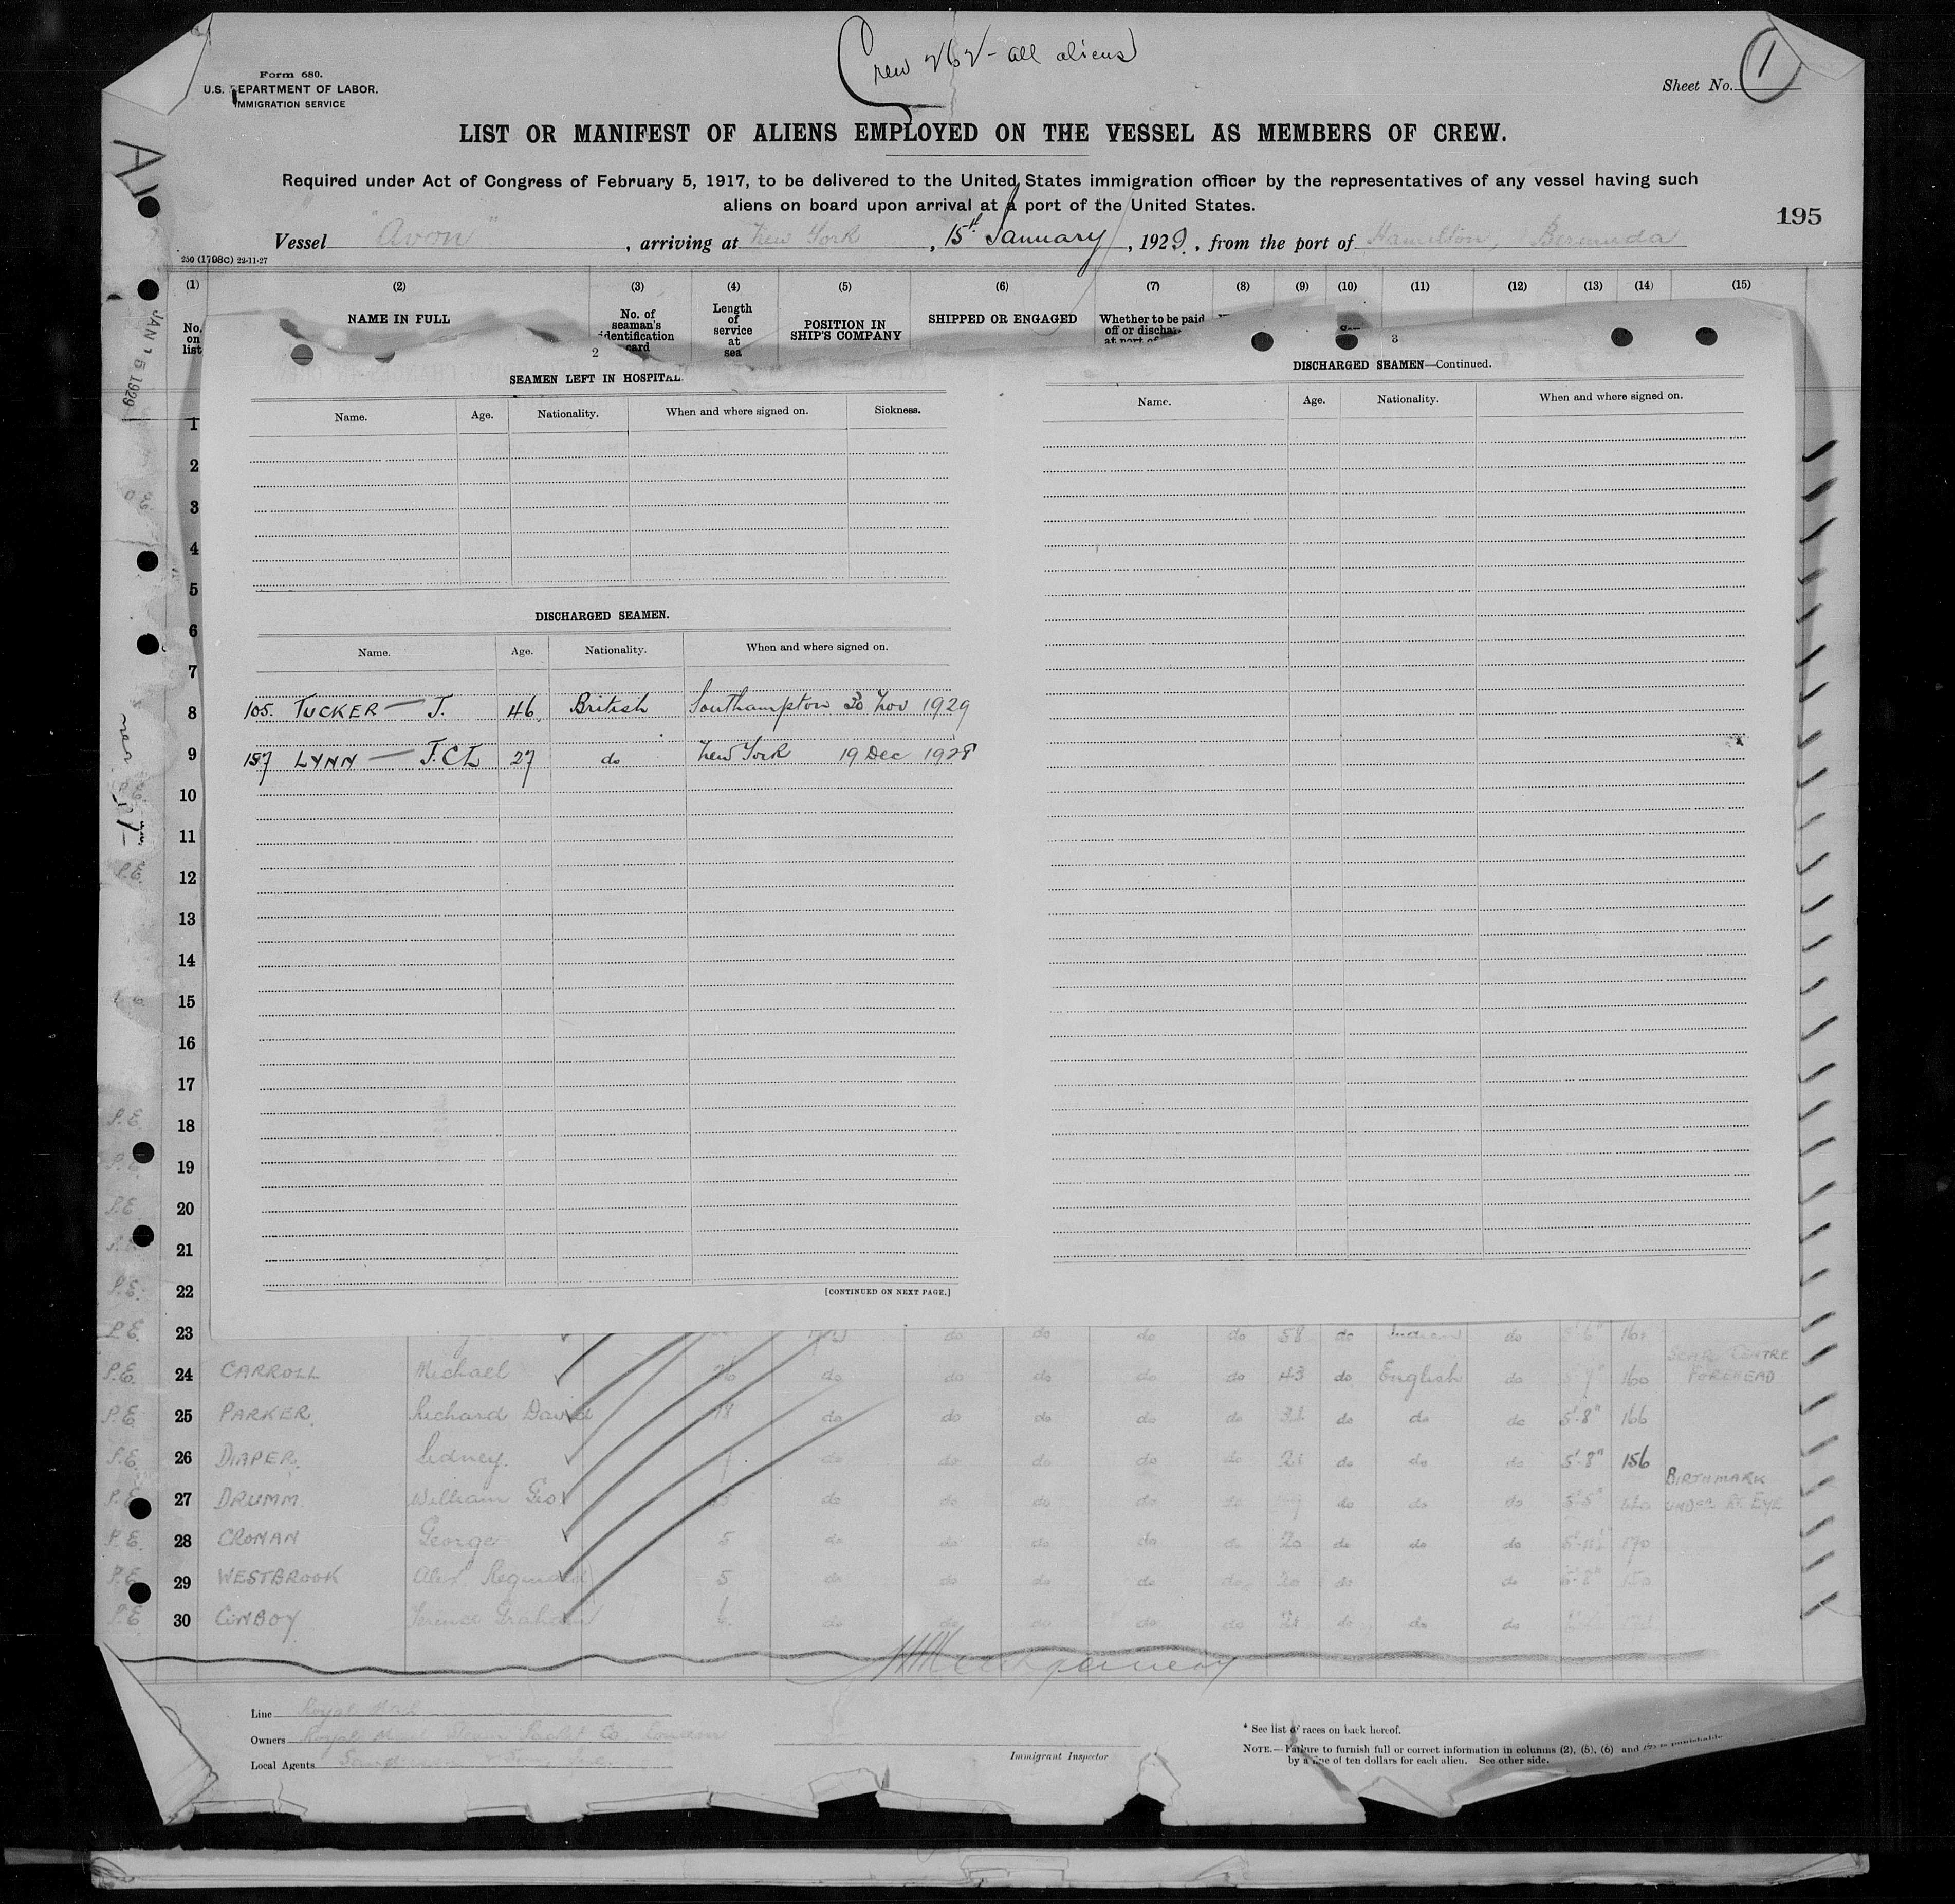 Crew 262 - all aliens
Form 680.
U.S. DEPARTMENT OF LABOR.
IMMIGRATION SERVICE
Sheet No. 1
LIST OR MANIFEST OF ALIENS EMPLOYED ON THE VESSEL AS MEMBERS OF CREW.
Required under Act of Congress of February 5, 1917, to be delivered to the United States immigration officer by the representatives of any vessel having such
aliens on board upon arrival at a port of the United States.
195
Vessel "Avon", arriving at New York, 15th January, 1929., from the port of Hamilton, Bermuda
250 (1798C) 22-11-27
(1) (2) (3) (4) (5) (6) (7) (8) (9) (10) (11) (12) (13) (14) (15)
No. on list
NAME IN FULL
No. of seaman's identification card
Length of service at sea
POSITION IN SHIP'S COMPANY
SHIPPED OR ENGAGED
Whether to be paid off or discha
at port of
JAN 15 1929
2
SEAMEN LEFT IN HOSPITAL.
Name. Age. Nationality. When and where signed on. Sickness.
DISCHARGED SEAMEN.
Name. Age. Nationality. When and where signed on.
105. TUCKER — J. 46. British Southampton 30 Nov 1929
157 LYNN — J.C.L 27 do New York 19 Dec 1928
[CONTINUED ON NEXT PAGE.]
3
DISCHARGED SEAMEN—Continued.
Name. Age. Nationality. When and where signed on.
1
2
3
4
5
6
7
8
9
10
11
12
13
14
15
16
17
18
19
20
21
22
P.E. 23 do do do do 58 do Indian do 5'6"
P.E. 24 CARROLL Michael 26 do do do do do 43 do English do 160 SCAR CENTRE FOREHEAD
P.E. 25 PARKER Richard David 18 do do do do do do do do 5'8" 166
P.E. 26 DIAPER Sidney. do do do do do do do do 5'8" 156
P.E. 27 DRUMM William Geo do do do do do do do do 5'5" BIRTHMARK UNDER RT EYE
P.E. 28 CRONAN George 5 do do do do do 20 do do do 170
P.E. 29 WESTBROOK Alex. Reginald 5 do do do do do do do 5'8" 150
P.E. 30 CONBOY Terence Graham 6 do do do do do 21 do do do
Line Royal Mail
Owners Royal Mail Steam Packet Co London
Local Agents Sanderson & Son, Inc.
Immigrant Inspector
* See list of races on back hereof.
NOTE.—Failure to furnish full or correct information in columns (2), (5), (6) and (7) is punishable
by a fine of ten dollars for each alien. See other side.